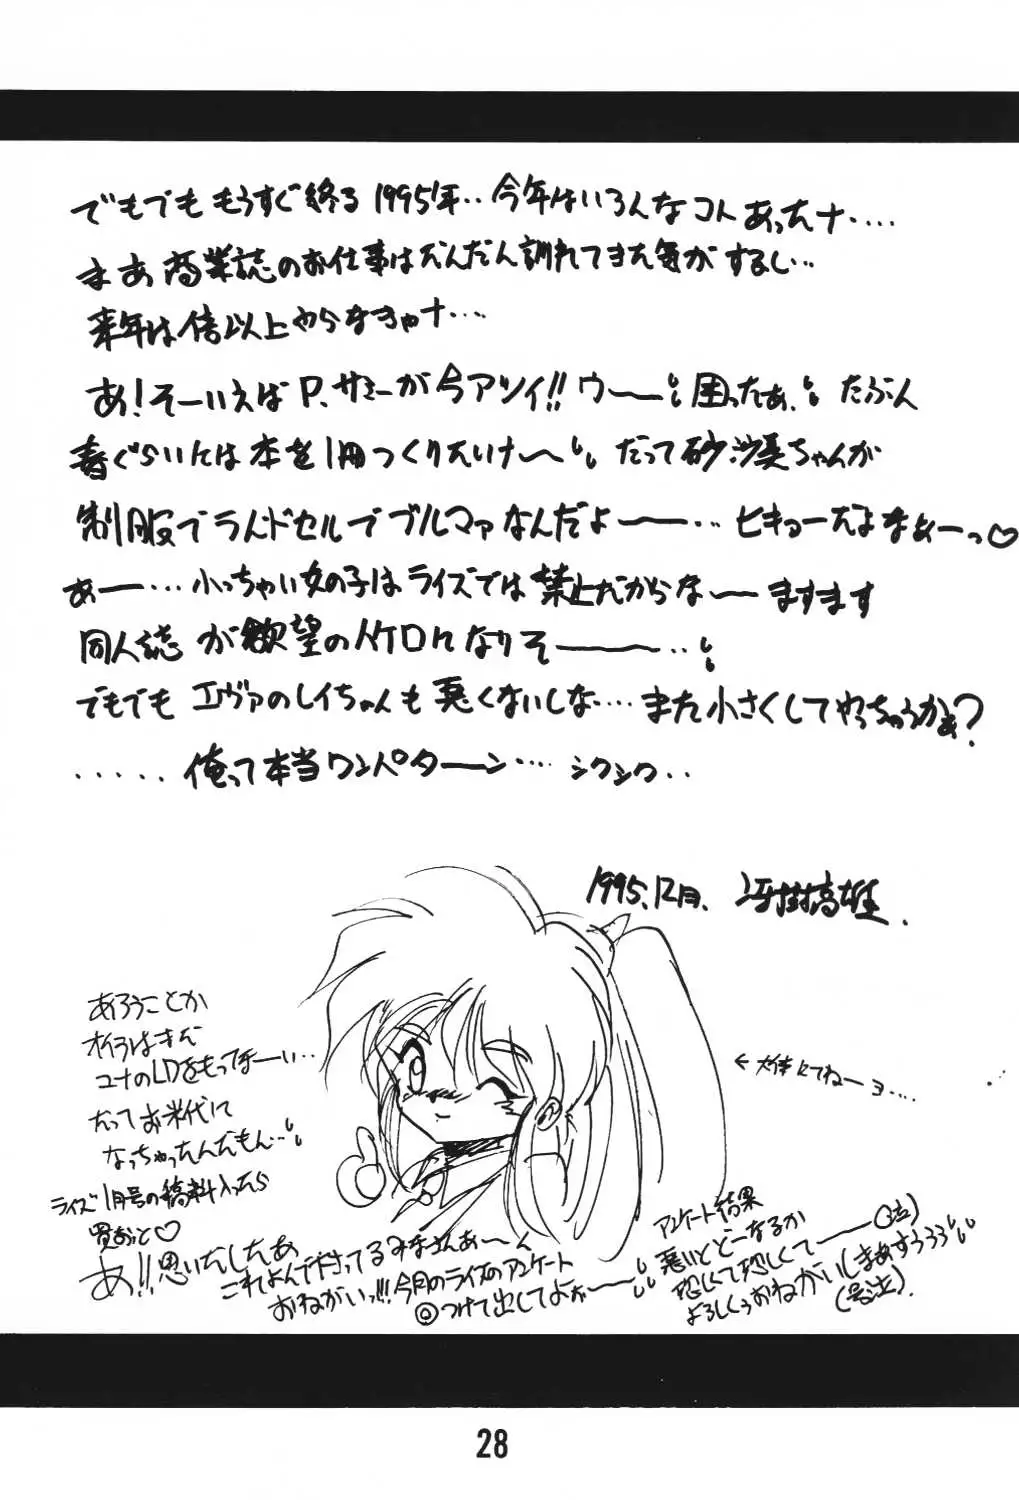 でもでも もうすぐ終る1995年‥今年はいろんなコトあったナ‥‥
まあ商業誌のお仕事はだんだん訓れてきた気がするし‥
来年は倍以上やらなきゃナ‥‥
あ!そーいえばP.サミーが今アツイ!!ウー―困ったぁ、たぶん
春ぐらいには本を1冊つくりたいナー〜だって砂沙美ちゃんが
制服でランドセルでブルマァなんだよ―――‥‥ヒキョーだよなぁーっ♡
あー―‥‥小っちゃい女の子はライズでは禁止だからな〜―ますます
同人誌が欲望のハケ口になりそ―――‥
でもでも エヴァのレイちゃんも悪くないしな‥‥また小さくしてやっちゃうかぁ?
‥‥‥俺って本当ワンパターン‥‥シクシク‥
1995.12月. 冴樹高雄.
あろうことか
オイラはまだ
ユナのLDをもってほーい‥‥
だってお米代に
なっちゃったんだもん‥‥
ライズ1月号の稿料入ったら
買おっと♡
←メ体にてねーヨ‥‥
あ!!思いだしたぁ
これよんで下さってるみなさんあ〜〜
おねがいっ!!!今月のライズのアンケート
◎つけて出してよぉ―――
アンケート結果
悪いとどーなるか
恐しくて恐しくて―――(泣)
よろしくぅおねがいしまぁすぅぅぅ
(号泣).
28